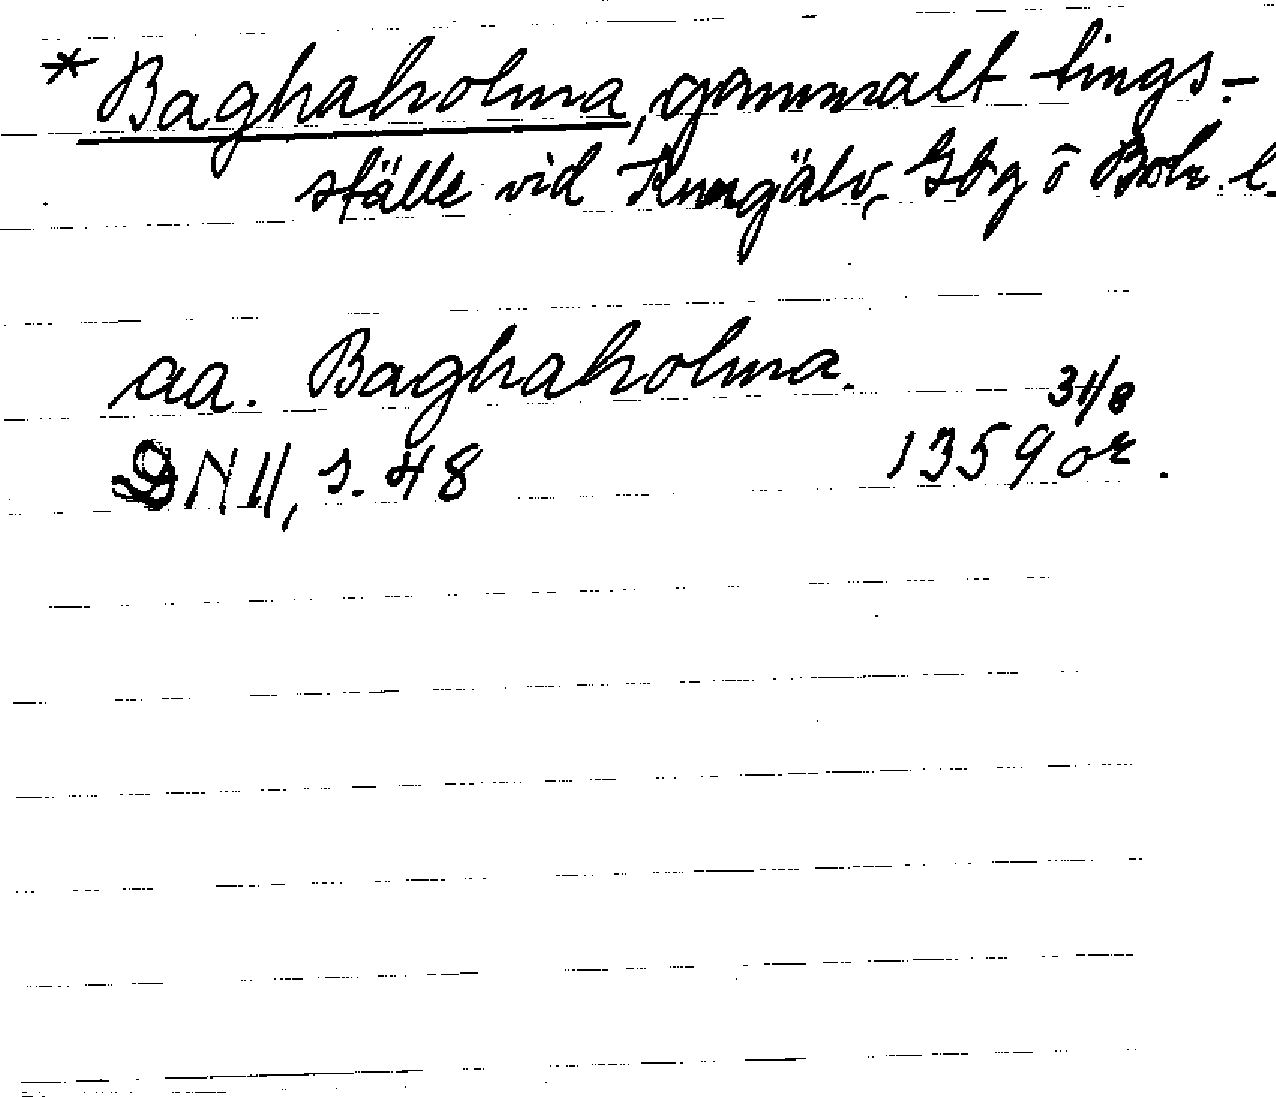 * Baghaholma, gammalt tings-
ställe vid Kungälv, Gbg o Boh. l.
aa. Baghaholma. 31/8
DN II, s. 48 1359 or.